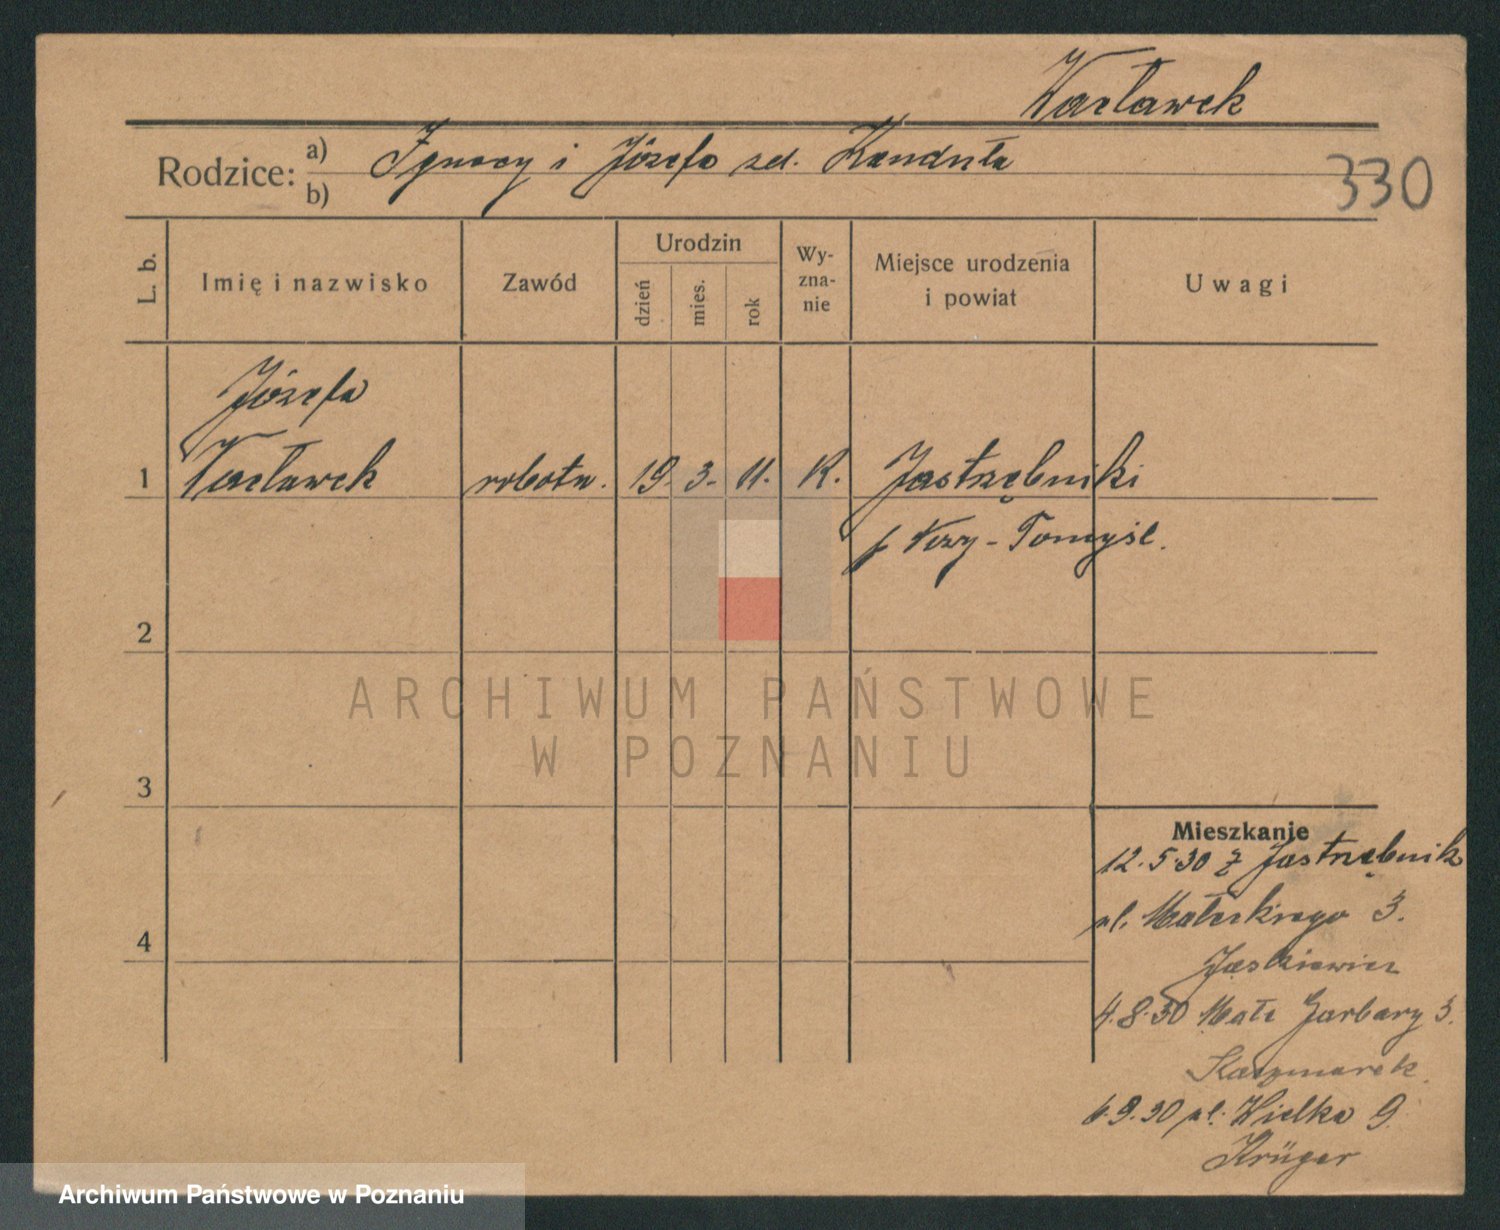 Wacławek
Rodzice: a) Ignacy i Józefa zd. Kanduła
b)
330
L. b.
Imię i nazwisko
Zawód
Urodzin
dzień
mies.
rok
Wy-
zna-
nie
Miejsce urodzenia
i powiat
Uwagi
Józefa
1 Wacławek robotn. 19. 3. 11. K. Jastrzębniki
p. Nowy-Tomyśl.
2
ARCHIWUM PAŃSTWOWE
W POZNANIU
3
Mieszkanie
12.5.30 z Jastrzębnik
ul. 3.
Jaskiewicz
4
4.8.30 Małe Garbary 3.
Kaczmarek
6.9.30 ul. Wielka 9.
Krüger
Archiwum Państwowe w Poznaniu